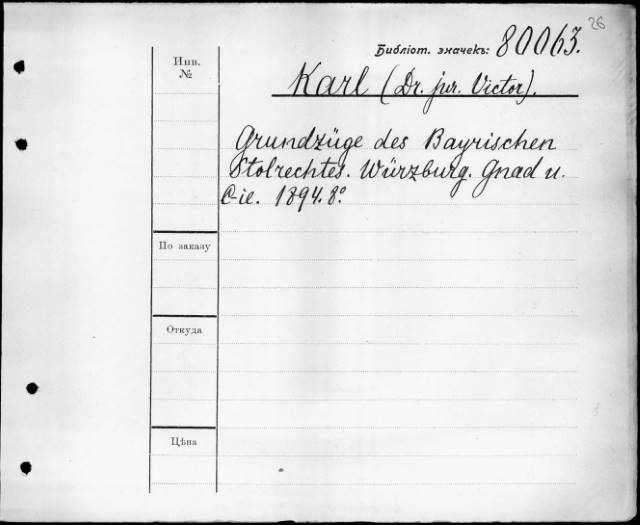 26
Библіот. значекъ: 80063.
Инв.
№
Karl (Dr. jur. Victor).
Grundzüge des Bayrischen
Stolrechtes. Würzburg. Gnad u.
Cie. 1894. 8°.
По заказу
Откуда
Цѣна